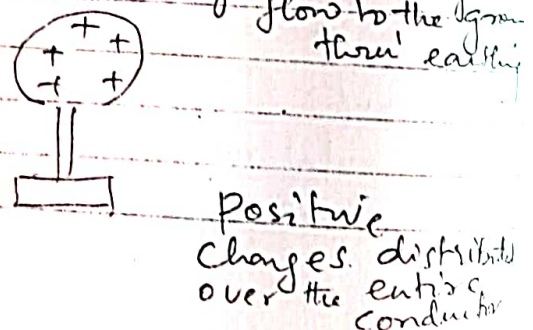 flow to the
thro' earthing
+ + + + +
Positive
charges distributed
over the entire
conductor